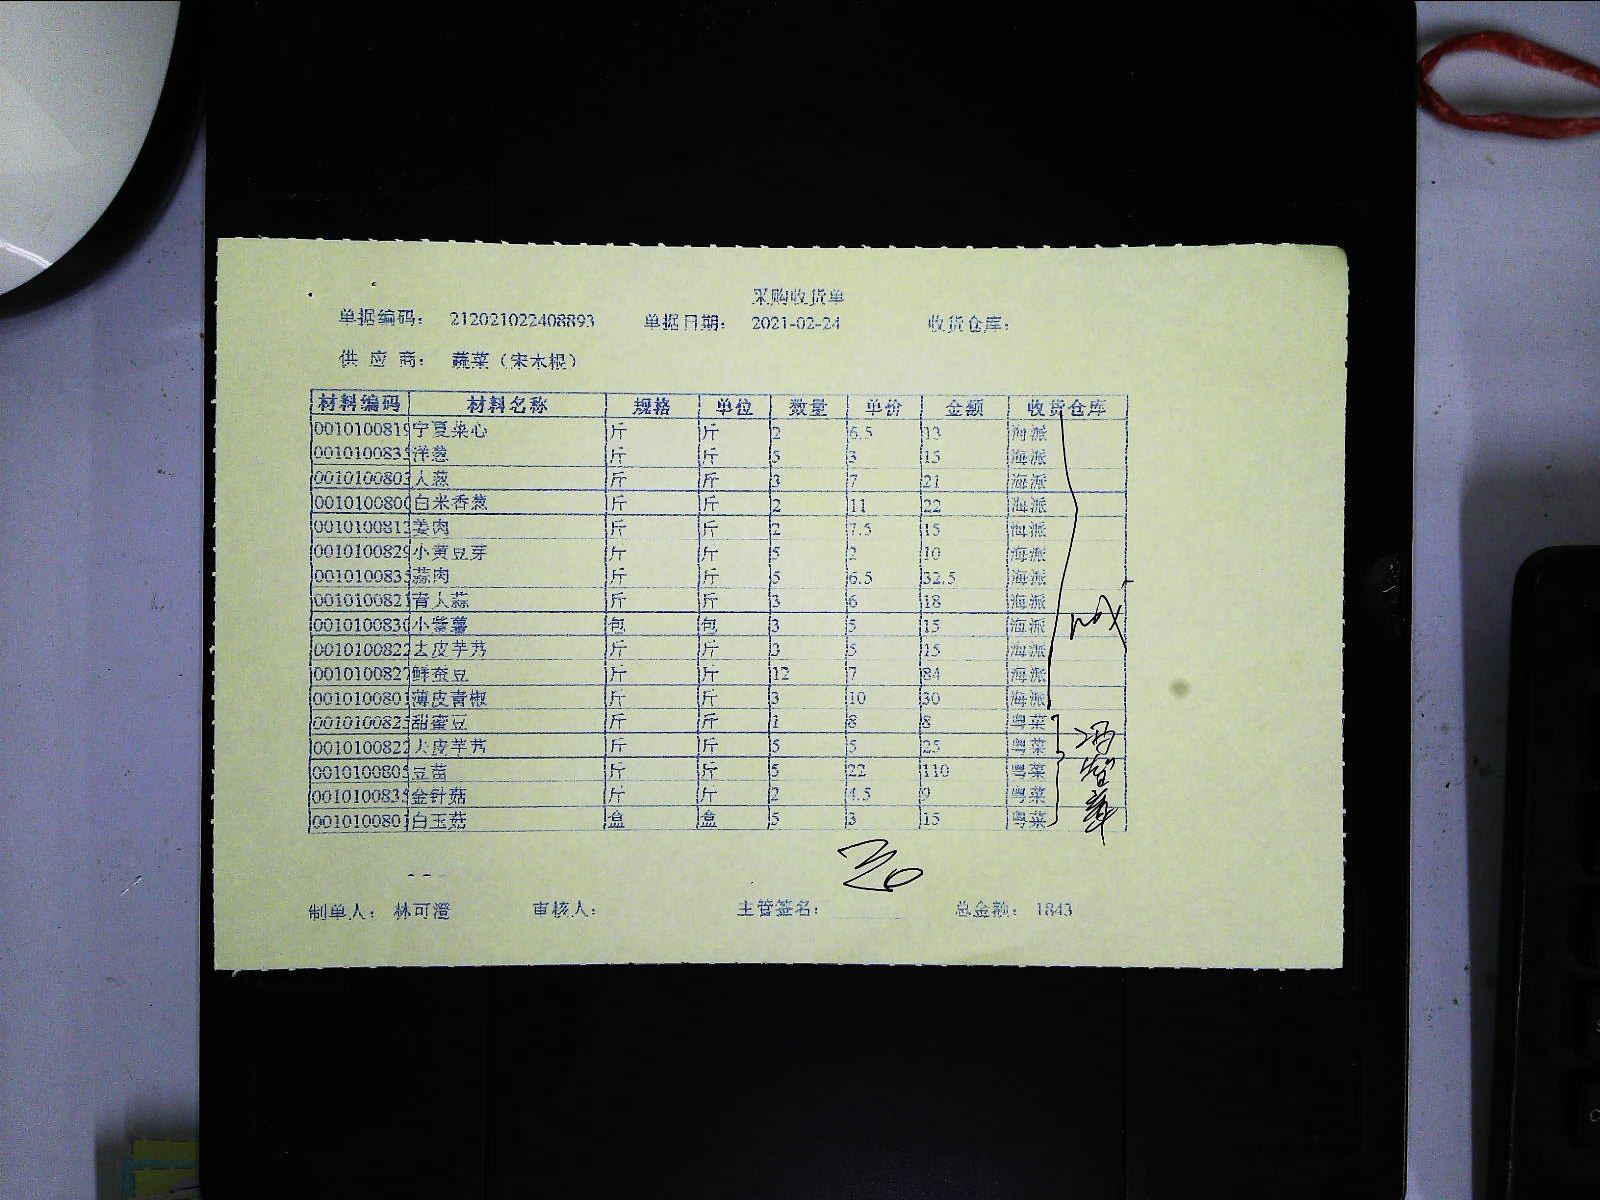 采购收货单
单据编码： 212021022408893 单据日期： 2021-02-24 收货仓库：
供 应 商： 蔬菜（宋木根）
材料编码 材料名称 规格 单位 数量 单价 金额 收货仓库
0010100819 宁夏菜心 斤 斤 2 6.5 13 海派
001010083 洋葱 斤 斤 5 3 15 海派
001010080 大葱 斤 斤 3 7 21 海派
0010100800 白米香葱 斤 斤 2 11 22 海派
001010081 姜肉 斤 斤 2 7.5 15 海派
0010100829 小黄豆芽 斤 斤 5 2 10 海派
001010083 蒜肉 斤 斤 5 6.5 32.5 海派
0010100821 青大蒜 斤 斤 3 6 18 海派
0010100830 小紫薯 包 包 3 5 15 海派
0010100822 去皮芋艿 斤 斤 3 5 15 海派
0010100827 鲜蚕豆 斤 斤 12 7 84 海派
0010100801 薄皮青椒 斤 斤 3 10 30 海派
001010082 甜蜜豆 斤 斤 1 8 8 粤菜
0010100822 去皮芋艿 斤 斤 5 5 25 粤菜
001010080 豆苗 斤 斤 5 22 110 粤菜
001010083 金针菇 斤 斤 2 4.5 9 粤菜
0010100801 白玉菇 盒 盒 5 3 15 粤菜
制单人： 林可澄 审核人： 主管签名： 总金额： 1843